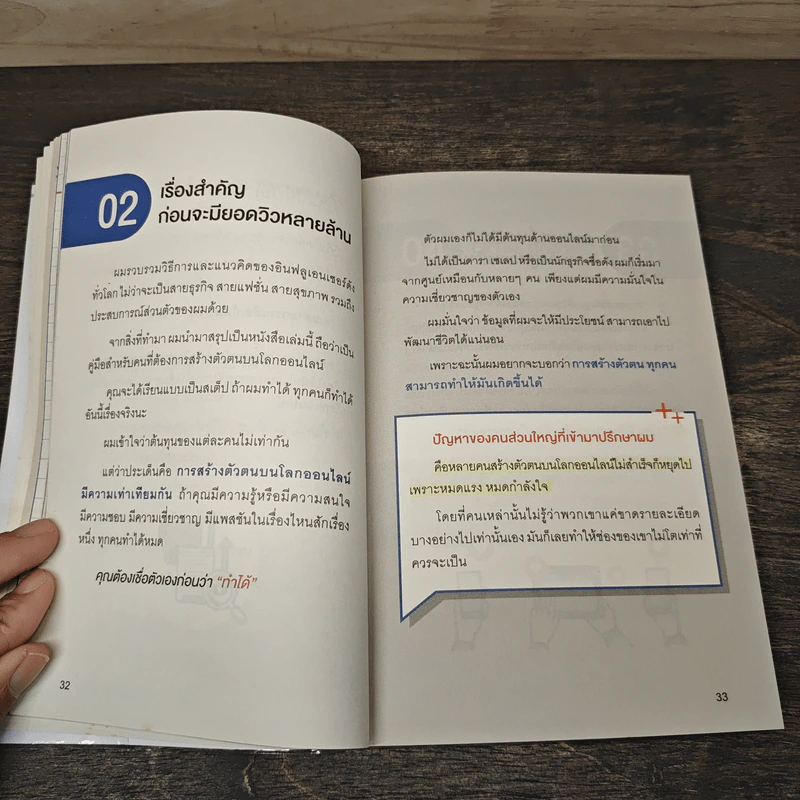 02
เรื่องสำคัญ
ก่อนจะมียอดวิวหลายล้าน
ผมรวบรวมวิธีการและแนวคิดของอินฟลูเอนเซอร์ดัง
ทั่วโลก ไม่ว่าจะเป็นสายธุรกิจ สายแฟชั่น สายสุขภาพ รวมถึง
ประสบการณ์ส่วนตัวของผมด้วย
จากสิ่งที่ทำมา ผมนำมาสรุปเป็นหนังสือเล่มนี้ ถือว่าเป็น
คู่มือสำหรับคนที่ต้องการสร้างตัวตนบนโลกออนไลน์
คุณจะได้เรียนแบบเป็นสเต็ป ถ้าผมทำได้ ทุกคนก็ทำได้
อันนี้เรื่องจริงนะ
ผมเข้าใจว่าต้นทุนของแต่ละคนไม่เท่ากัน
แต่ว่าประเด็นคือ การสร้างตัวตนบนโลกออนไลน์
มีความเท่าเทียมกัน ถ้าคุณมีความรู้หรือมีความสนใจ
มีความชอบ มีความเชี่ยวชาญ มีแพสชันในเรื่องไหนสักเรื่อง
หนึ่ง ทุกคนทำได้หมด
คุณต้องเชื่อตัวเองก่อนว่า “ทำได้”
32
ตัวผมเองก็ไม่ได้มีต้นทุนด้านออนไลน์มาก่อน
ไม่ได้เป็นดารา เซเลป หรือเป็นนักธุรกิจชื่อดัง ผมก็เริ่มมา
จากศูนย์เหมือนกับหลายๆ คน เพียงแต่ผมมีความมั่นใจใน
ความเชี่ยวชาญของตัวเอง
ผมมั่นใจว่า ข้อมูลที่ผมจะให้มีประโยชน์ สามารถเอาไป
พัฒนาชีวิตได้แน่นอน
เพราะฉะนั้นผมอยากจะบอกว่า การสร้างตัวตน ทุกคน
สามารถทำให้มันเกิดขึ้นได้
ปัญหาของคนส่วนใหญ่ที่เข้ามาปรึกษาผม
คือหลายคนสร้างตัวตนบนโลกออนไลน์ไม่สำเร็จก็หยุดไป
เพราะหมดแรง หมดกำลังใจ
โดยที่คนเหล่านั้นไม่รู้ว่าพวกเขาแค่ขาดรายละเอียด
บางอย่างไปเท่านั้นเอง มันก็เลยทำให้ช่องของเขาไม่โตเท่าที่
ควรจะเป็น
33